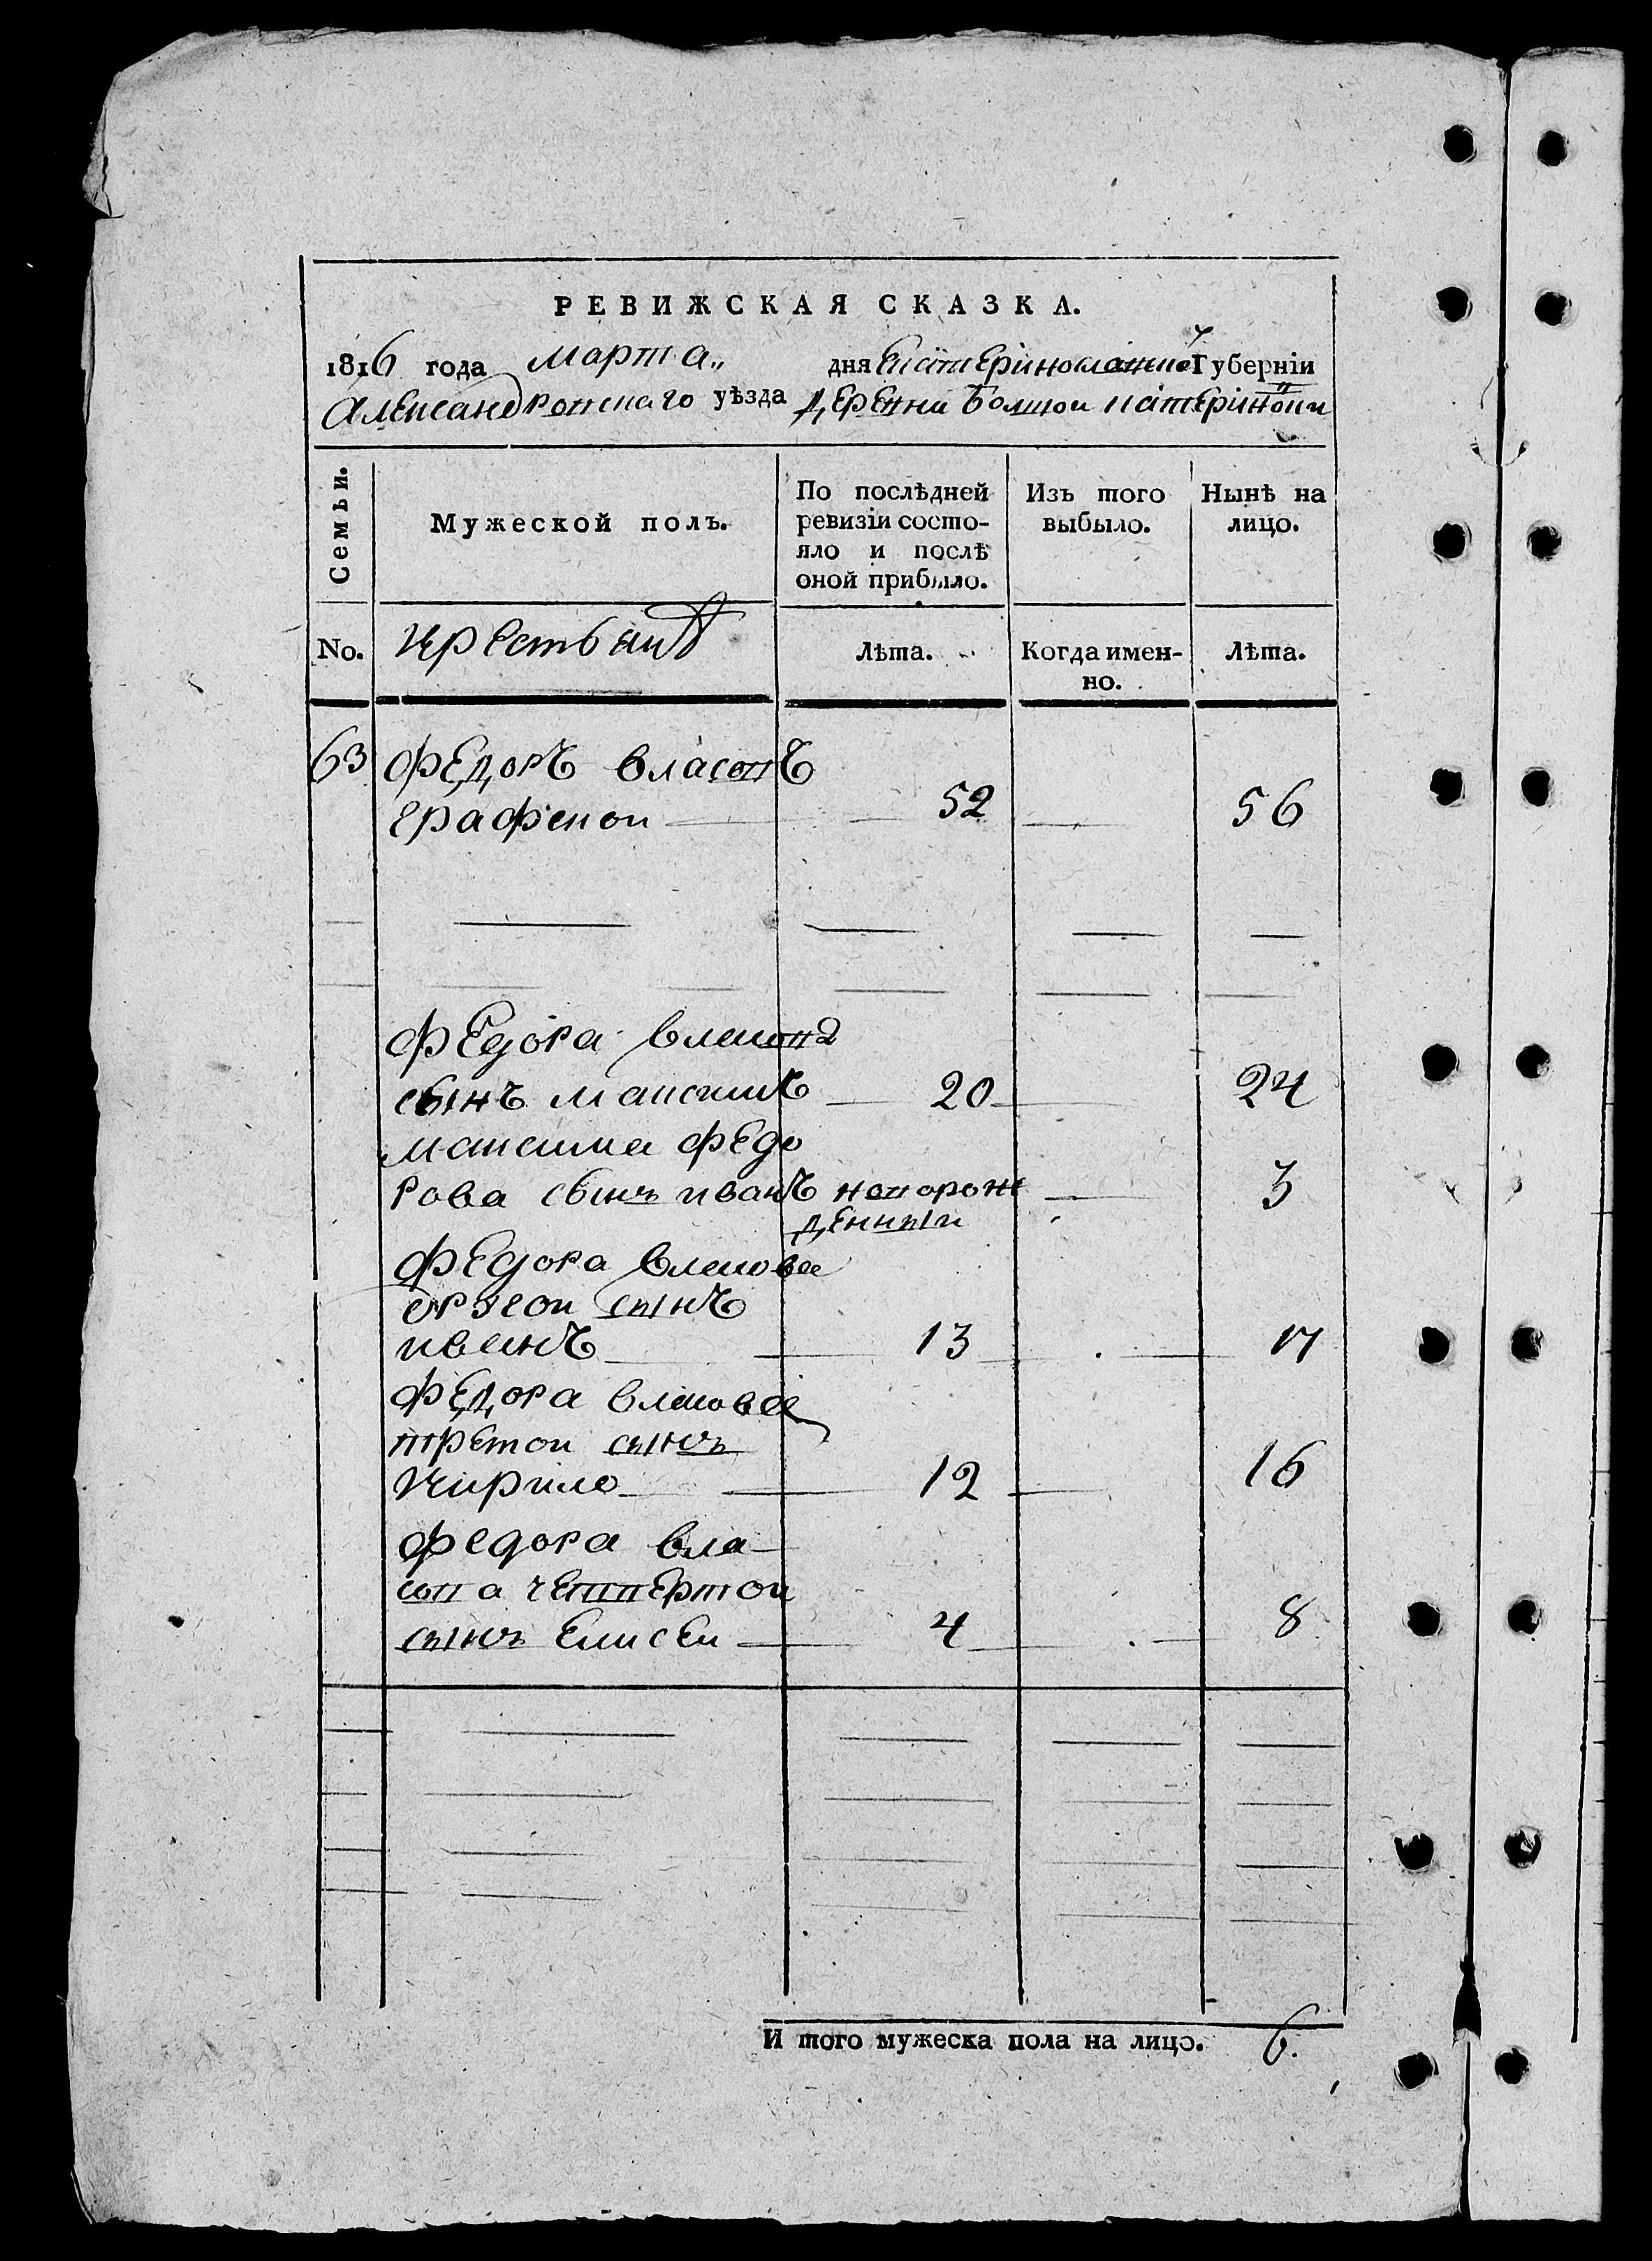 РЕВИЖСКАЯ СКАЗКА.
1816 года марта „ дня Екатеринославской Губерніи
Александровскаго уѣзда деревни Болшой катериновки
Семьи. Мужеской полъ. По послѣдней ревизіи состояло и послѣ оной прибыло. Изъ того выбыло. Нынѣ на лицо.
No. крестьянъ Лѣта. Когда имен-но. Лѣта.
63 Федоръ власовъ
52 56
Федора власова
сынъ максимъ 20 24
максима федо
рова сынъ иванъ новорож 3
денныи
Федора власова
другои сынъ
иванъ 13 17
Федора власова
третои сынъ
кирило 12 16
федора вла
сова четвертои
сынъ Елисеи 4 8
И того мужеска пола на лицо. 6.